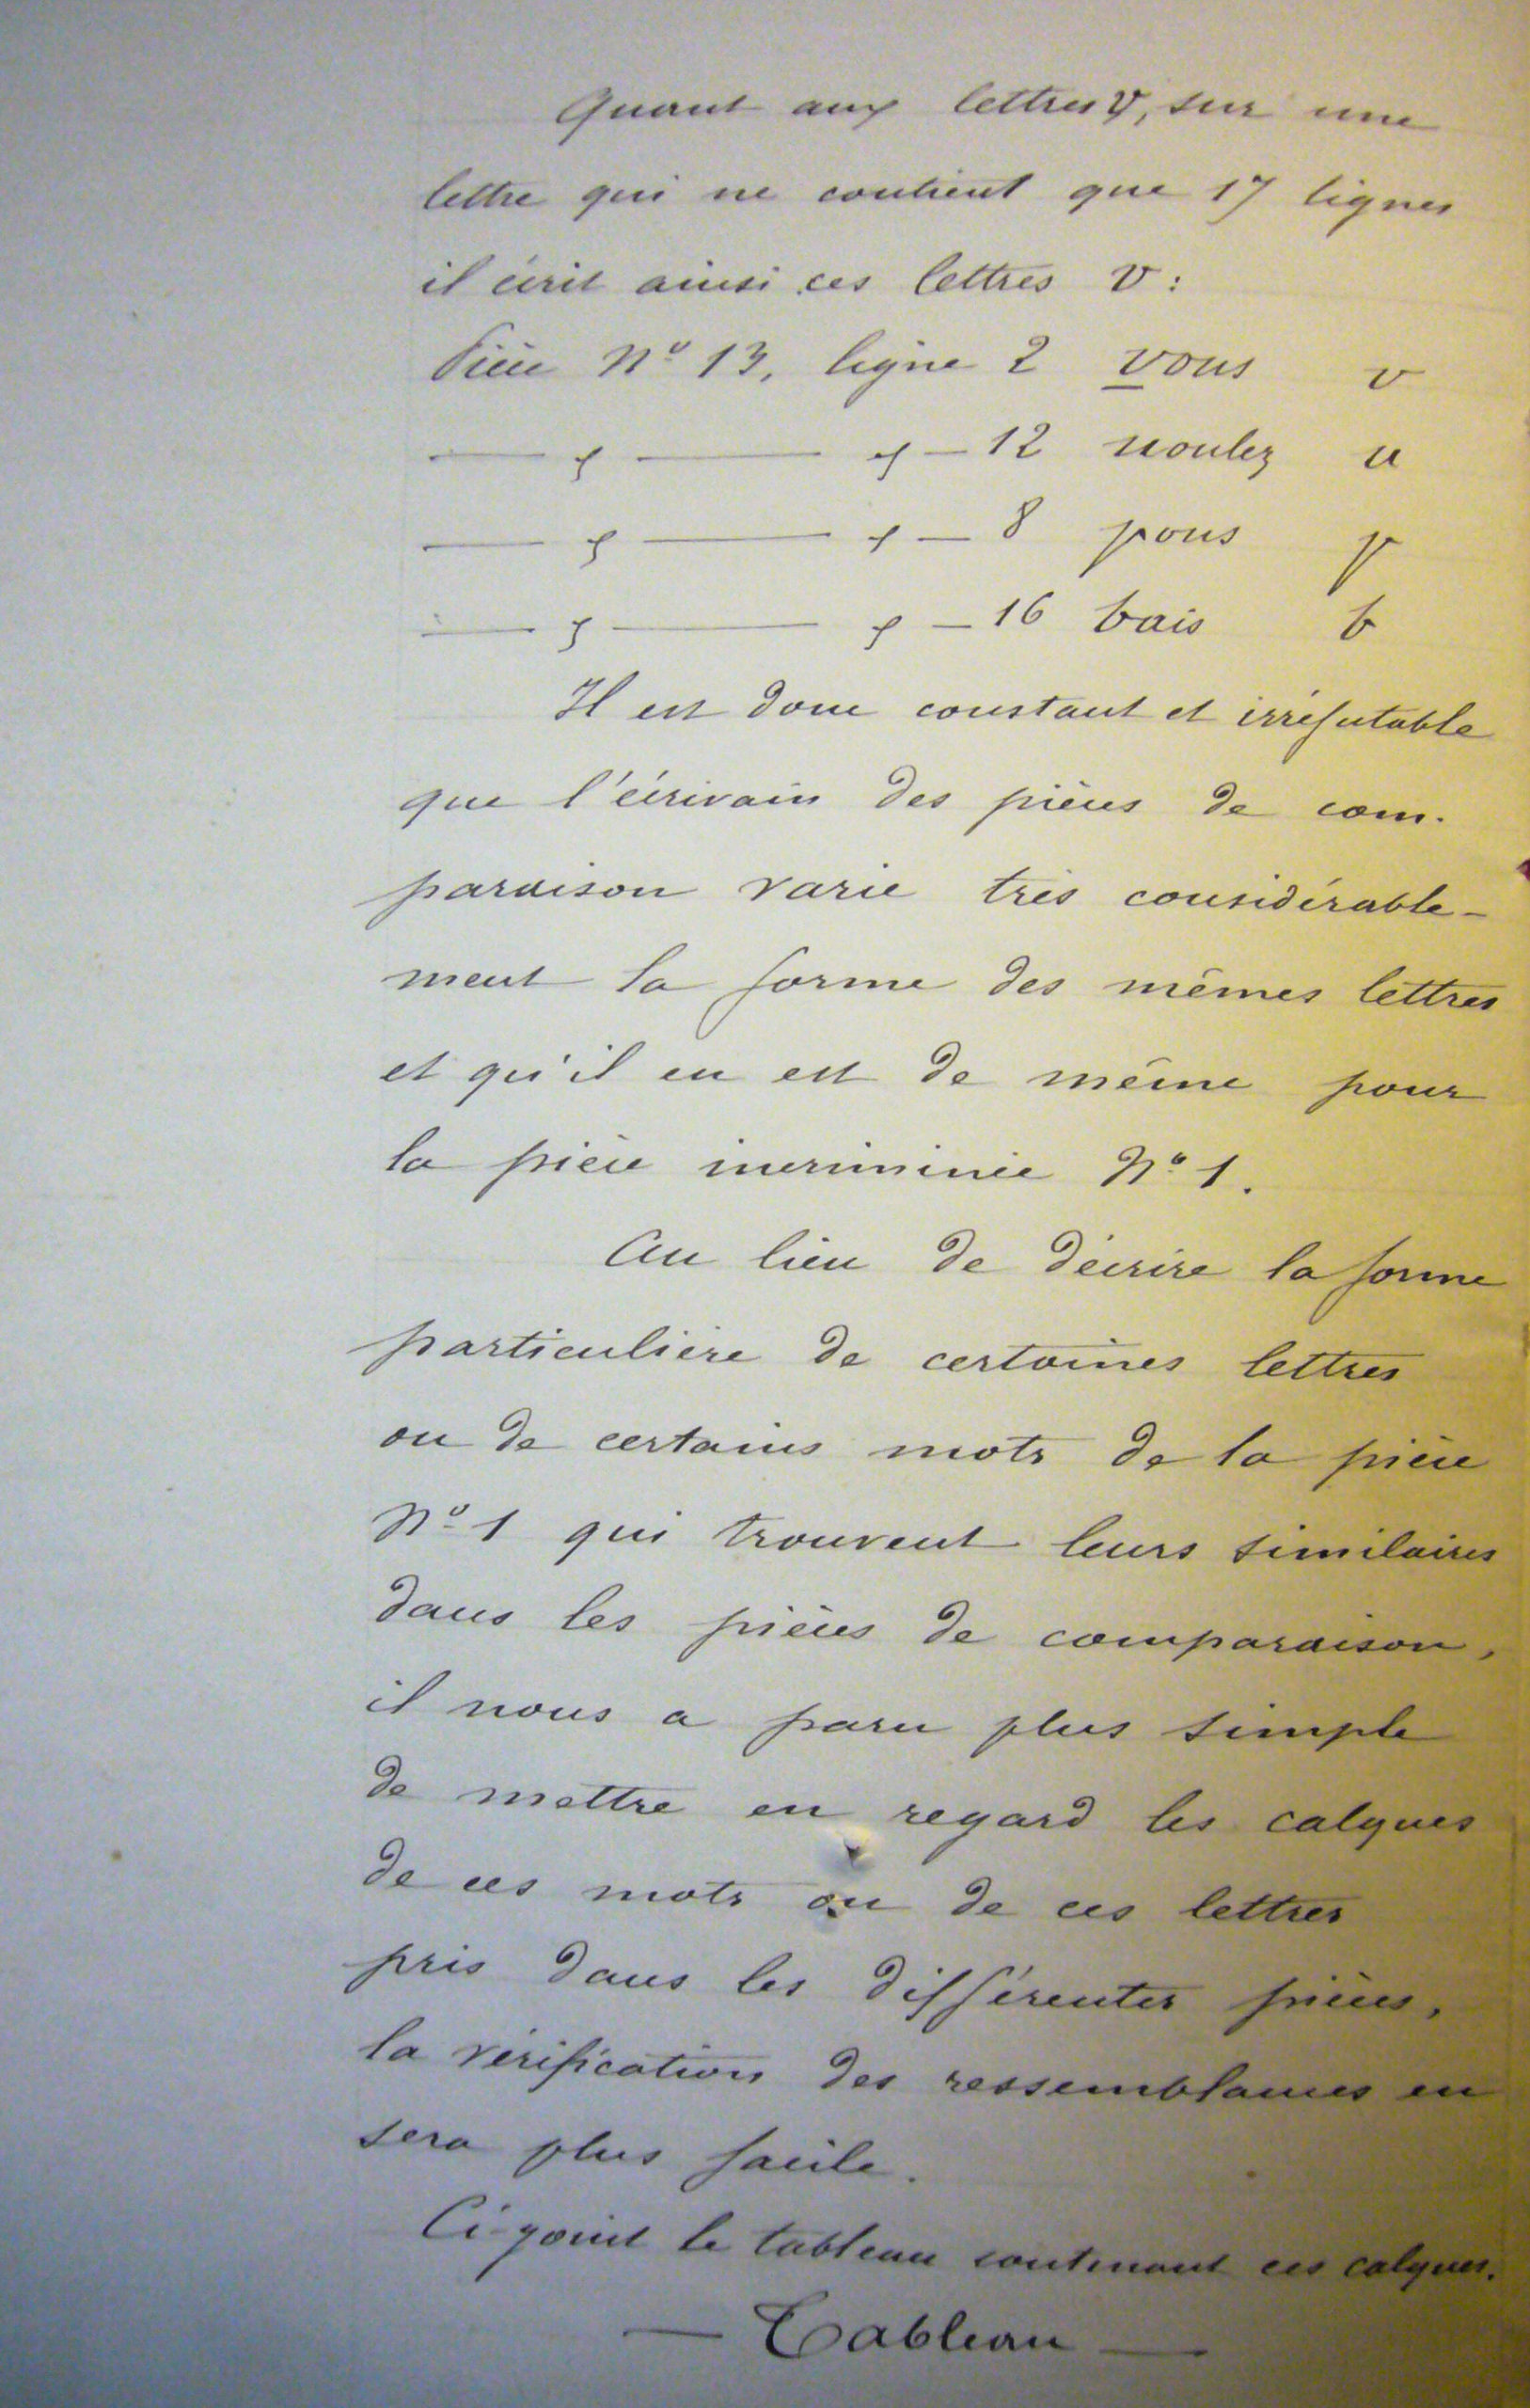 Quant aux lettres V, sur une
lettre qui ne contient que 17 lignes
il écrit ainsi ces lettres V :
Pièce N° 13, ligne 2 vous v
— " — " — 12 uoulez u
— " — " — 8 pous p
— " — " — 16 bais b
Il est donc constant et irréfutable
que l'écrivain des pièces de com-
paraison varie très considérable-
ment la forme des mêmes lettres
et qu'il en est de même pour
la pièce incriminée N° 1.
Au lieu de décrire la forme
particulière de certaines lettres
ou de certains mots de la pièce
N° 1 qui trouvent leurs similaires
dans les pièces de comparaison,
il nous a paru plus simple
de mettre en regard les calques
de ces mots ou de ces lettres
pris dans les différentes pièces,
la vérification des ressemblances en
sera plus facile.
Ci-joint le tableau contenant ces calques.
— Tableau —